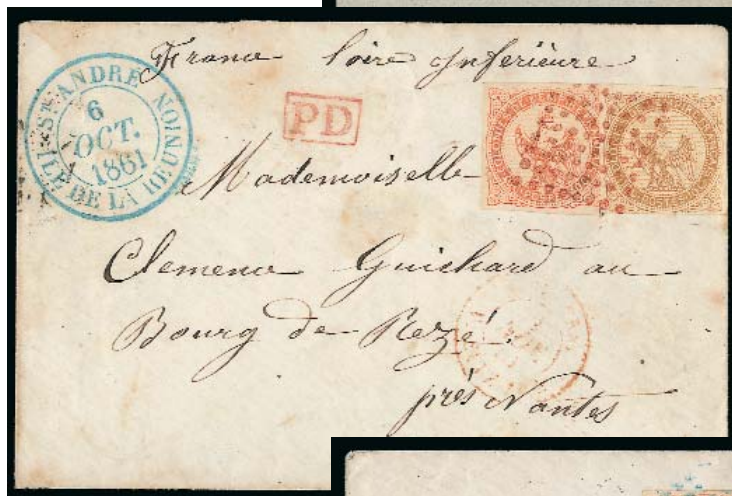 France Loire Inférieure
ST ANDRÉ ILE DE LA REUNION
6
OCT.
1861
PD
Mademoiselle
Clemence Guichard au
Bourg de Rezé.
près Nantes